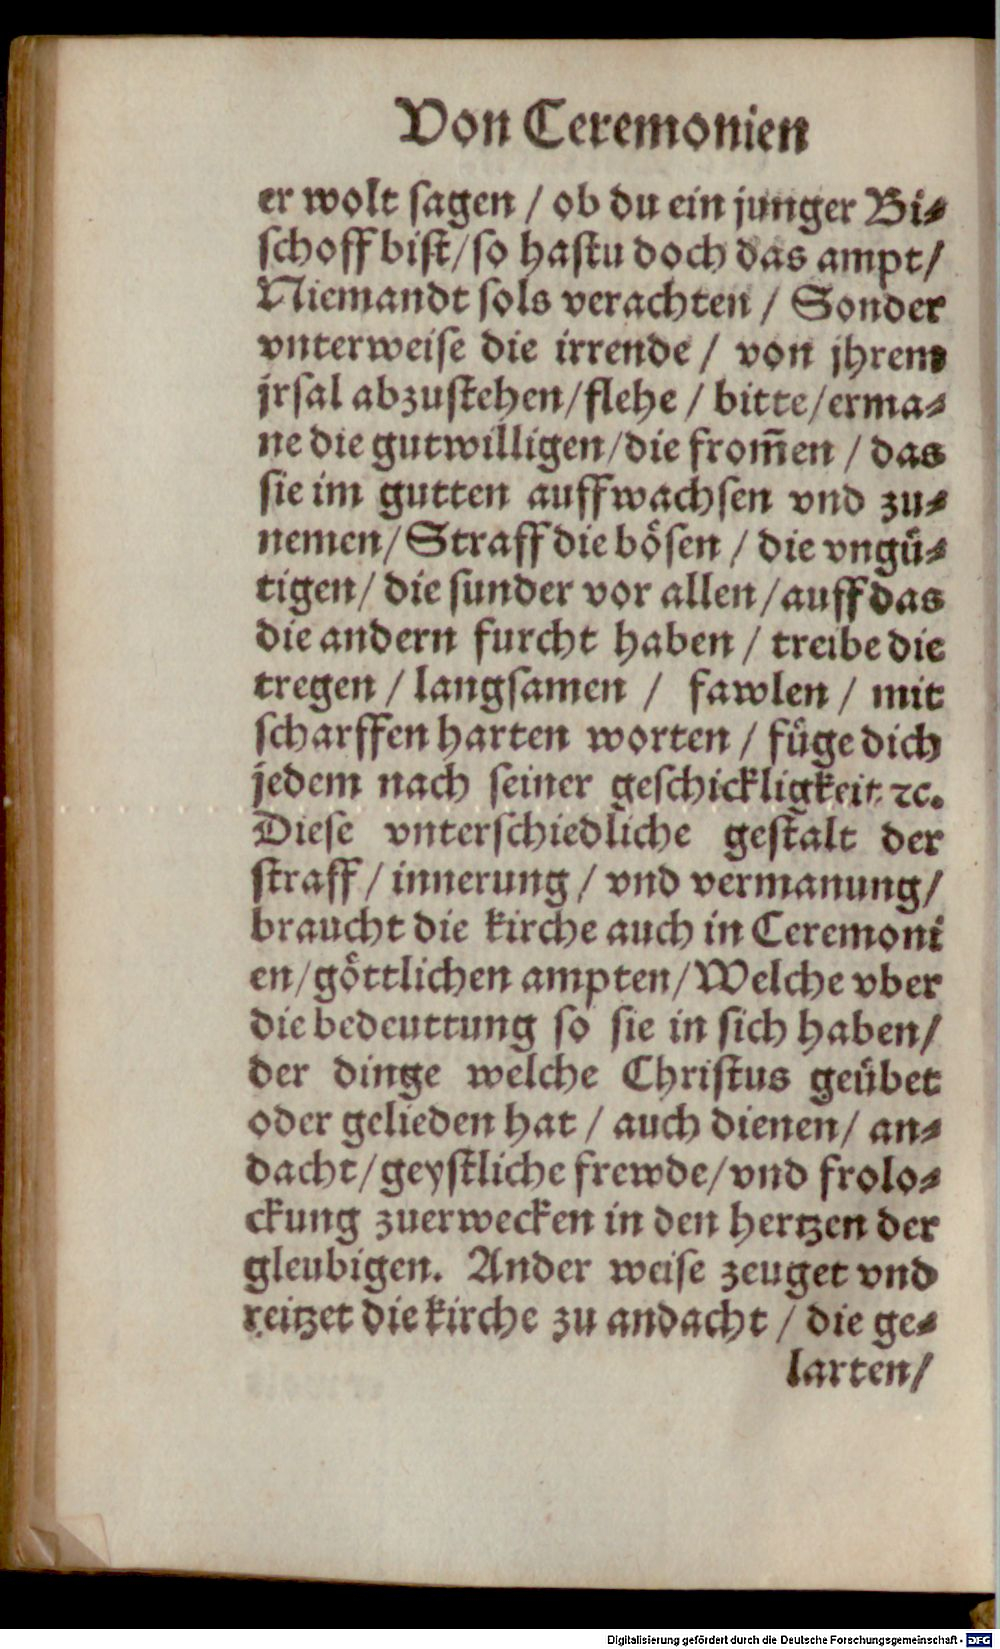 Von Ceremonien
er wolt sagen / ob du ein junger Bi⸗
schoff bist/ so hastu doch das ampt/
Niemandt sols verachten / Sonder
vnterweise die irrende / von jhrem
jrsal abzustehen/flehe / bitte/erma⸗
ne die gutwilligen/die from̃en / das
sie im gutten auffwachsen vnd zu⸗
nemen/ Straff die bösen / die vngü⸗
tigen/ die sunder vor allen/auff das
die andern furcht haben / treibe die
tregen / langsamen / fawlen / mit
scharffen harten worten / füge dich
jedem nach seiner geschickligkeit ꝛc.
Diese vnterschiedliche gestalt der
straff / innerung / vnd vermanung/
braucht die kirche auch in Ceremoni
en/göttlichen ampten/Welche vber
die bedeuttung so sie in sich haben/
der dinge welche Christus geübet
oder gelieden hat / auch dienen/ an⸗
dacht/geystliche frewde/vnd frolo⸗
ckung zuerwecken in den hertzen der
gleubigen. Ander weise zeuget vnd
reitzet die kirche zu andacht / die ge⸗
larten/
Digitalisierung gefördert durch die Deutsche Forschungsgemeinschaft - DFG